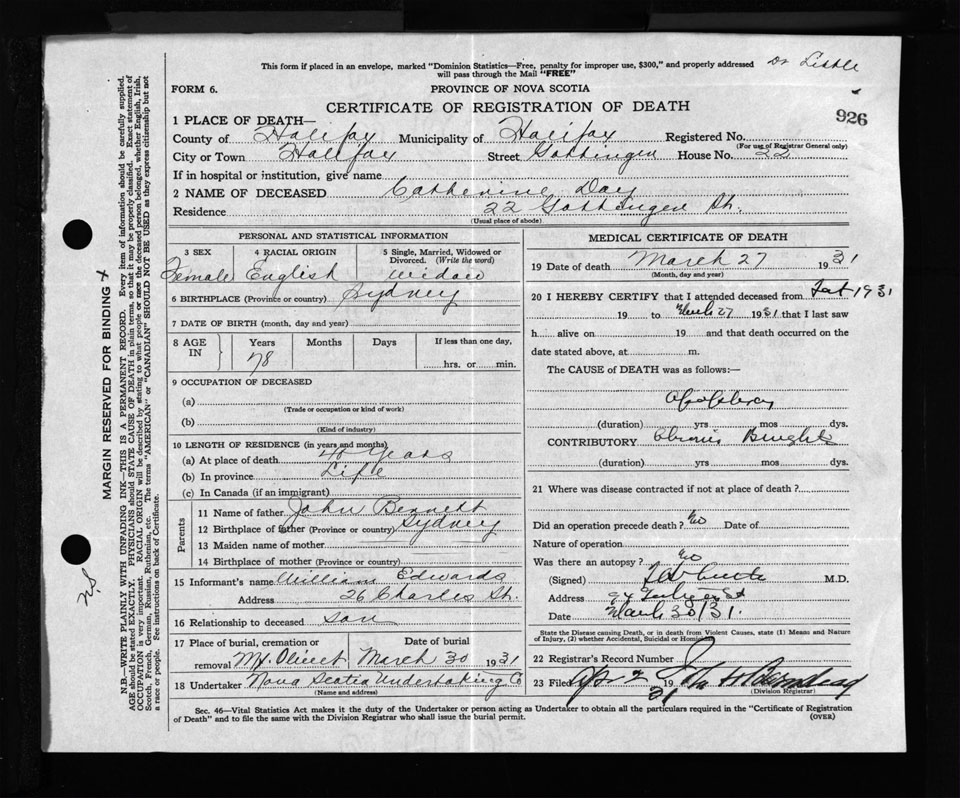 This form if placed in an envelope, marked "Dominion Statistics—Free, penalty for improper use, $300," and properly addressed
will pass through the Mail "FREE"
Dr Liddle
FORM 6.
PROVINCE OF NOVA SCOTIA
CERTIFICATE OF REGISTRATION OF DEATH
926
1 PLACE OF DEATH—
County of Halifax Municipality of Halifax Registered No.
(For use of Registrar General only)
City or Town Halifax Street Gottingen House No. 22
If in hospital or institution, give name
2 NAME OF DECEASED Catherine Day
Residence 22 Gottingen St.
(Usual place of abode)
PERSONAL AND STATISTICAL INFORMATION
3 SEX 4 RACIAL ORIGIN 5 Single, Married, Widowed or Divorced. (Write the word)
Female English widow
6 BIRTHPLACE (Province or country) Sydney
7 DATE OF BIRTH (month, day and year)
8 AGE IN Years Months Days If less than one day,
78 hrs. or min.
9 OCCUPATION OF DECEASED
(a)
(Trade or occupation or kind of work)
(b)
(Kind of industry)
10 LENGTH OF RESIDENCE (in years and months)
(a) At place of death 40 years
(b) In province Life
(c) In Canada (if an immigrant)
Parents
11 Name of father John Bennett
12 Birthplace of father (Province or country) Sydney
13 Maiden name of mother
14 Birthplace of mother (Province or country)
15 Informant's name William Edwards
Address 26 Charles St.
16 Relationship to deceased son
17 Place of burial, cremation or removal Mt. Olivet Date of burial March 30 1931
18 Undertaker Nova Scotia Undertaking Co
(Name and address)
MEDICAL CERTIFICATE OF DEATH
19 Date of death March 27 1931
(Month, day and year)
20 I HEREBY CERTIFY that I attended deceased from 1931
19 to March 27 1931 that I last saw
h alive on 19 and that death occurred on
date stated above, at m.
The CAUSE of DEATH was as follows:—
Apoplexy
(duration) yrs mos dys.
CONTRIBUTORY Chronic Brights
(duration) yrs mos dys.
21 Where was disease contracted if not at place of death?
Did an operation precede death? No Date of
Nature of operation
Was there an autopsy? No
(Signed) M.D.
Address
Date March 30/31.
State the Disease causing Death, or in death from Violent Causes, state (1) Means and Nature
of Injury, (2) whether Accidental, Suicidal or Homicidal.
22 Registrar's Record Number
23 Filed Apr 2 19 31
(Division Registrar)
Sec. 46—Vital Statistics Act makes it the duty of the Undertaker or person acting as Undertaker to obtain all the particulars required in the "Certificate of Registration
of Death" and to file the same with the Division Registrar who shall issue the burial permit.
(OVER)
MARGIN RESERVED FOR BINDING
N.B.—WRITE PLAINLY WITH UNFADING INK—THIS IS A PERMANENT RECORD. Every item of information should be carefully supplied.
AGE should be stated EXACTLY. PHYSICIANS should STATE CAUSE OF DEATH in plain terms, so that it may be properly classified. Exact statement of
OCCUPATION is very important. RACIAL ORIGIN will be described by stating to what people or race the deceased person belonged, whether English, Irish,
Scotch, French, German, Russian, Ruthenian, etc. The terms "AMERICAN" or "CANADIAN" SHOULD NOT BE USED as they express citizenship but not
a race or people. See instructions on back of Certificate.